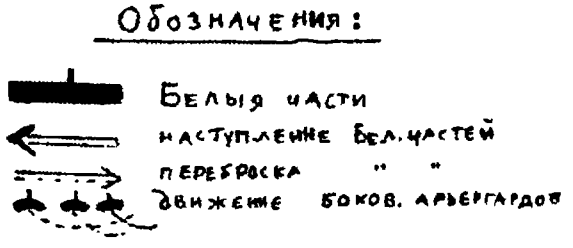 Обозначения:
Белыя части
наступление Бел. частей
переброска " "
движение боков. арьергардов